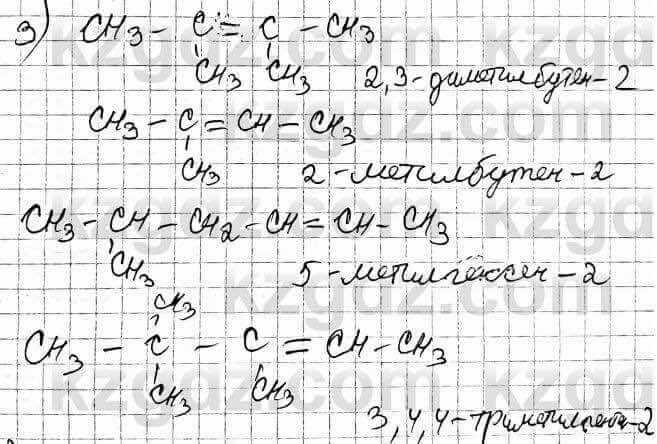 3) CH3 - C = C - CH3
CH3 CH3
2,3-диметилбутен-2
CH3 - C = CH - CH3
CH3
2-метилбутен-2
CH3 - CH - CH2 - CH = CH - CH3
CH3
5-метилгексен-2
CH3
CH3 - C - C = CH - CH3
CH3 CH3
3,4,4-триметилпентен-2